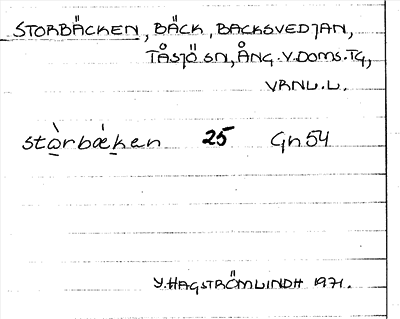 STORBÄCKEN, BÄCK, BACKSVEDJAN,
TÅSJÖ SN, ÅNG. V. DOMS. TG,
VRNL.L.
stòrbæ̀ken 25 Gn 54
Y. HAGSTRÖMLINDH 1971.